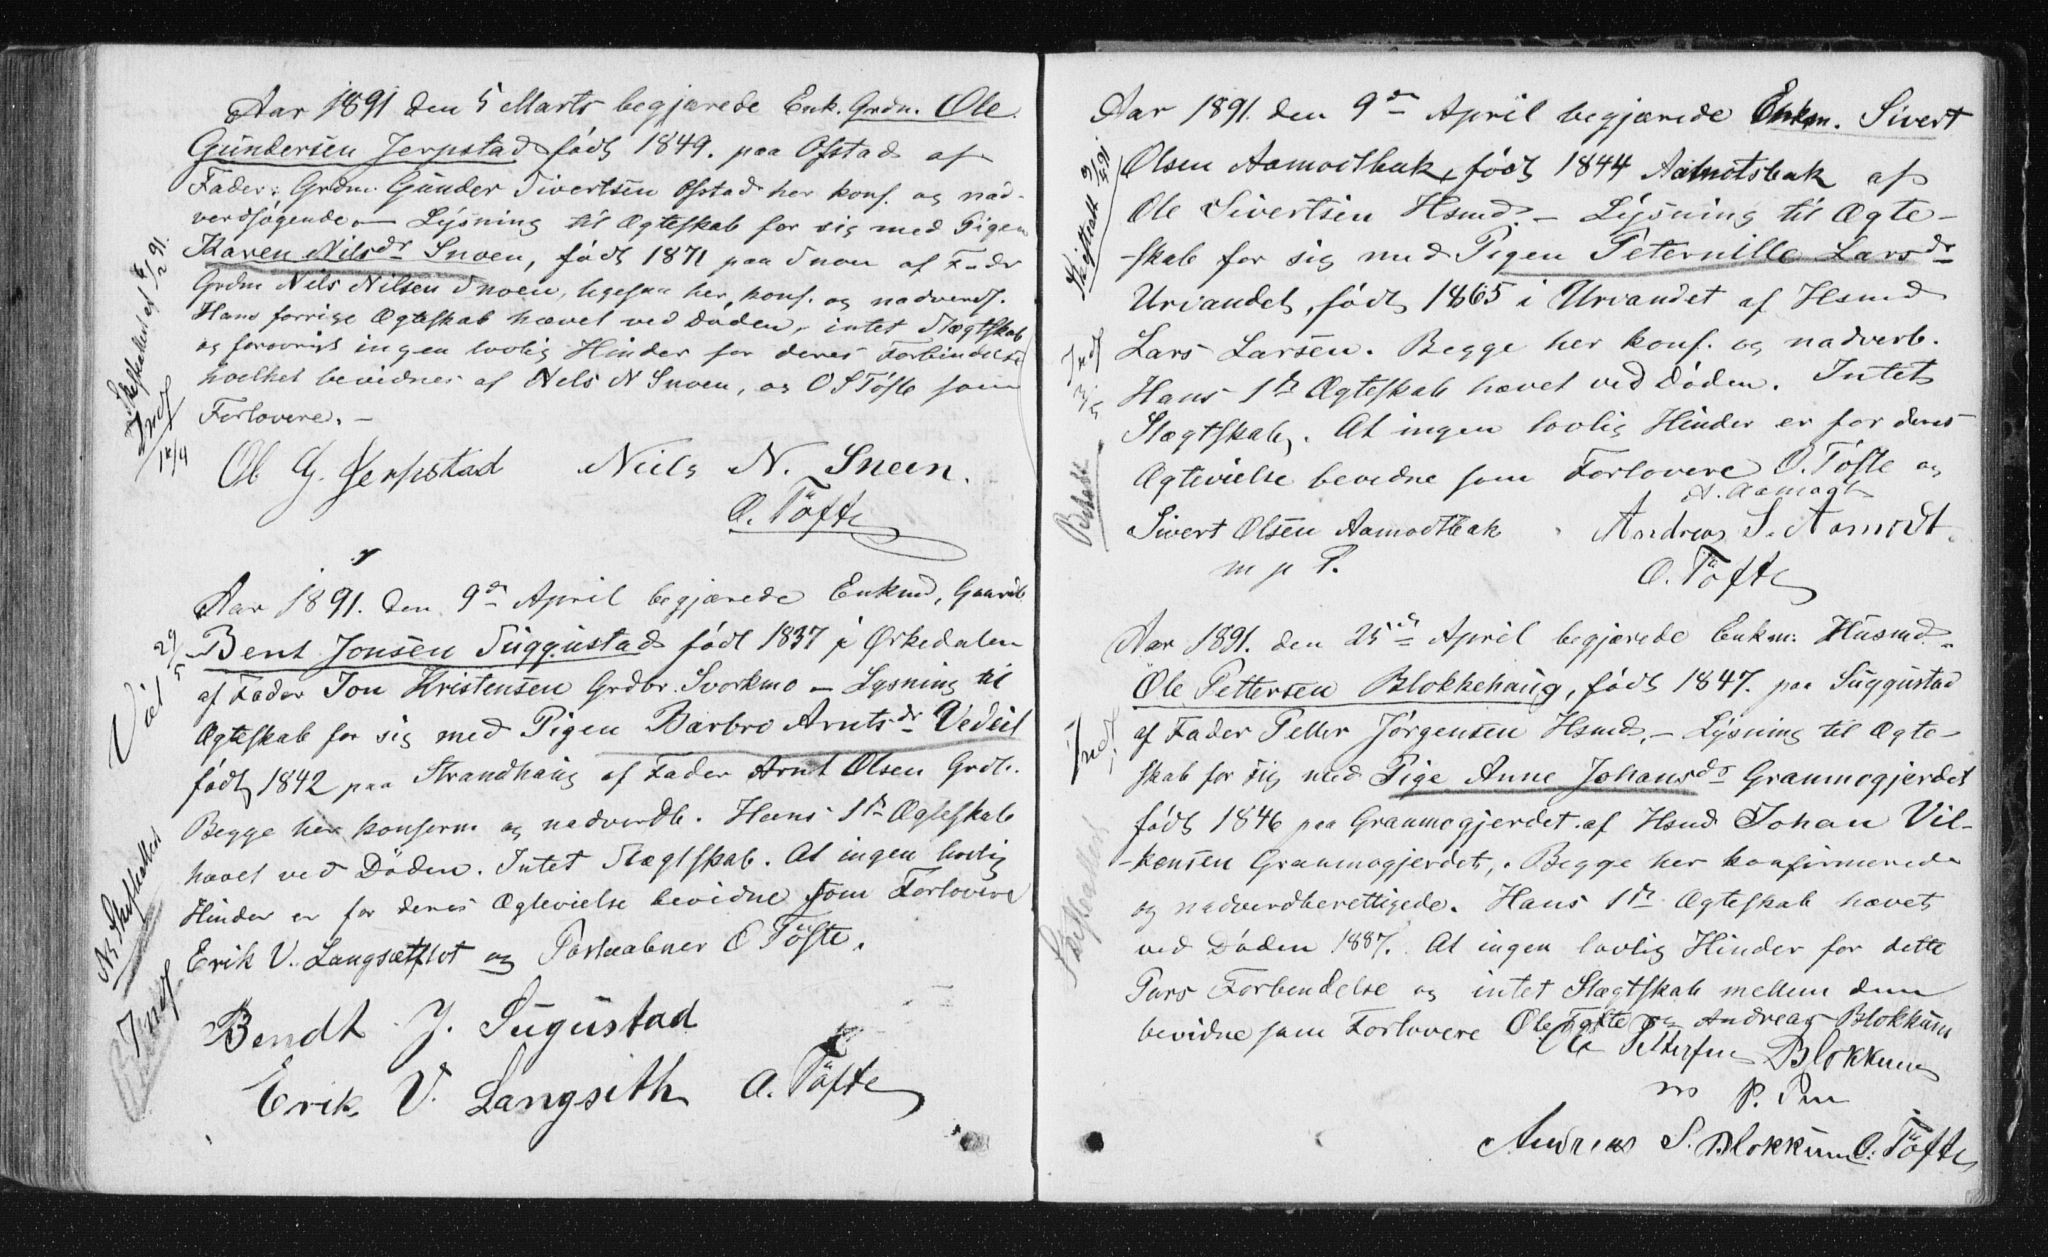 Aar 1891 den 5 Marts begjærede Enk. Grdm. Ole
Gündersen Jerpstad født 1849. paa Ofstad af
Fader: Grdm. Günder Sivertsen Ofstad her konf. og nad-
verdsøgende — Lysning til Ægteskab for sig med Pigen
Karen Nilsdr Snoen, født 1871 paa Snoen af Fader
Grdm Nils Nilsen Snoen, ligesaa her, konf. og nadverds.
Hans forrige Ægteskab hævet ved Døden, intet Slægtskab
og forøvrigt ingen lovlig Hinder for deres Forbindelse
hvelket bevidnes af Nels N Snoen, og O S Tøfte som
Forlovere. —
Skifteattest af 16/2 91.
Indf
12/4
Ol G. Jerpstad Niils N. Sneen.
O. Töfte
Aar 1891. den 9de April begjærede Enkmd, Gaardb
Bent Jonsen Süggüstad født 1837 i Ørkedalen
af Fader Jon Kristensen Grdbr. Svorkmo — Lysning til
Ægteskab for sig med Pigen Barbro Arntsdr Vedeil
født 1842 paa Strandhaüg af Fader Arnt Olsen Grdb.
Begge her konferm og nadverdb. Hans 1ste Ægteskab
hævet ved Døden. Intet Slægtskab. At ingen lovlig
Hinder er for deres Ægtevielse bevidne som Forlovere
Erik V. Langsætflot og Poståabner O Tøfte.
Viet 29/5
Nb Skifteattest
Indf
Bendt J. Sugustad
Erik V. Langsith O. Töfte
Aar 1891. den 9de April begjærede Enkem. Sivert
Olsen Aamodtbak, født 1844 Aamotsbak af
Ole Sivertsen Hsmd. — Lysning til Ægte-
-skab for sig med Pigen Peternille Larsdr
Urvandet, født 1865 i Urvandet af Hsmd
Lars Larsen. Begge her konf. og nadverb.
Hans 1ste Ægteskab hævet ved Døden. Intet
Slægtskab,. At ingen lovlig Hinder er for deres
Ægtevielse bevidne som Forlovere O. Tøfte og
A. Aamodt
Skifteatt 9/5 91.
Indf
3/5
Betalt
Sivert Olsen Aamodtbak Andreas S. Aamodt.
m p P. O. Töfte
Aar 1891. den 25de April begjærede Enkm: Hüsmd.
Ole Pettersen Blokkehaüg, født 1847. paa Süggüstad
af Fader Petter Jörgensen Hsmd, — Lysning til Ægte-
skab for sig med Pige Anne Johansdr Granmogjerdet
født 1846 paa Granmogjerdet af Hsmd Johan Vil-
-kensen Granmogjerdet,. Begge her konfirmerede
og nadverdberettigede. Hans 1ste Ægteskab hævet
ved Døden 1887. At ingen lovlig Hinder for dette
Pars Forbendelse og intet Slægtskab mellem dem
bevidne som Forlovere Ole Tøfte og Andreas Blokküm
Indf
Skifteattest
Ole Pettersen Blokkum
m P. Pen
Andreas S. Blokkum O. Töfte